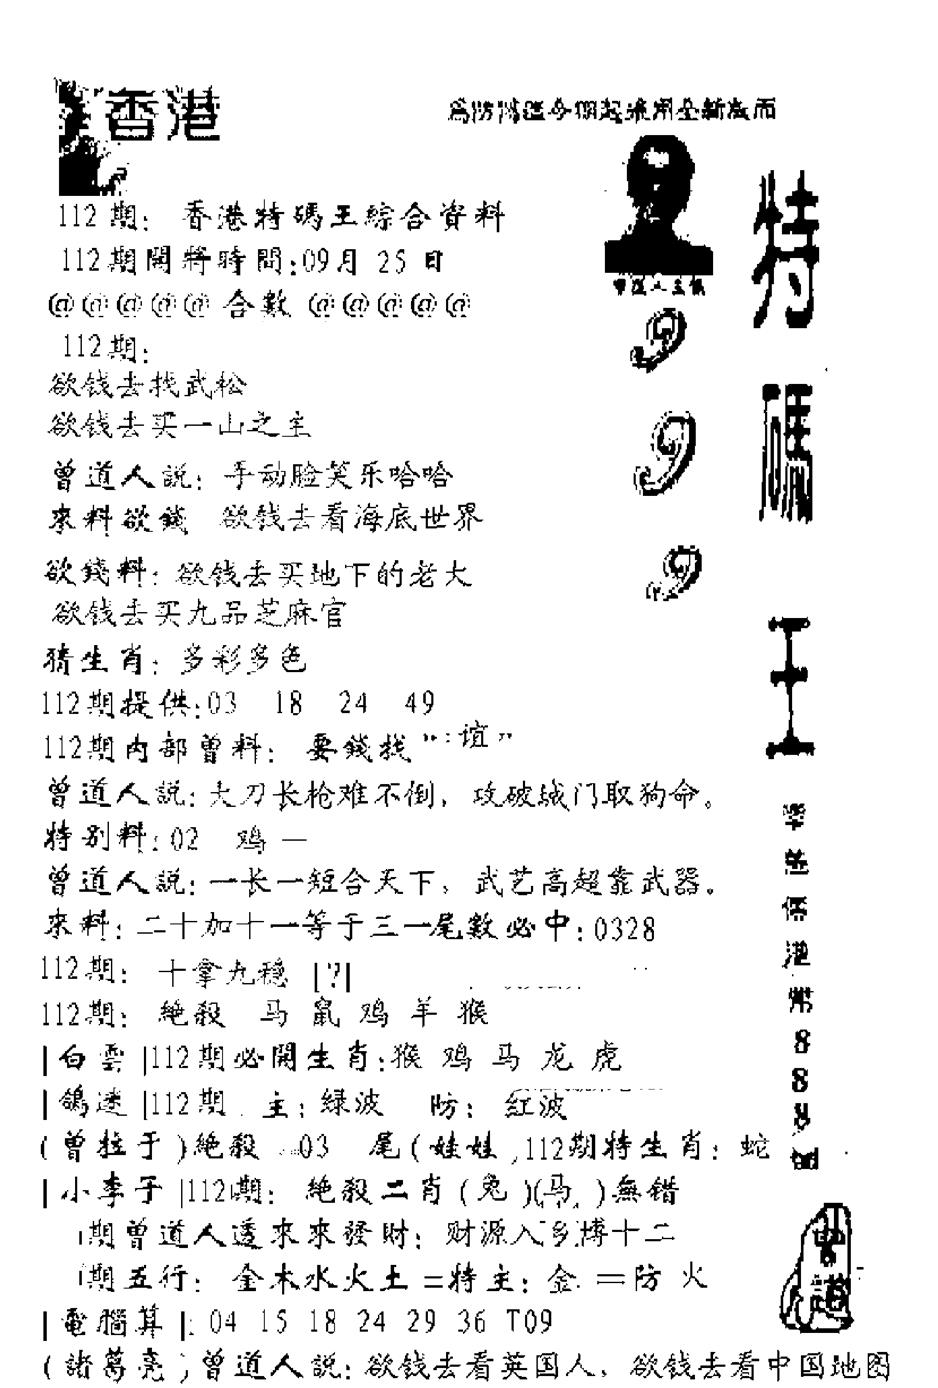 香港
為防濫造今期起採用全新版面
112期: 香港特碼王綜合資料
112期開將時間:09月 25日
@@@@@合數@@@@@
112期:
欲钱去找武松
欲钱去买一山之主
曾道人説: 手动脸笑乐哈哈
來料欲錢 欲钱去看海底世界
欲錢料: 欲钱去买地下的老大
欲钱去买九品芝麻官
猜生肖: 多彩多色
112期提供:03 18 24 49
112期内部曾料: 要錢找“:谊”
曾道人説:大刀长枪难不倒，攻破城门取狗命。
特别料:02 鸡一
曾道人説:一长一短合天下，武艺高超靠武器。
來料:二十加十一等于三一尾數必中:0328
112期: 十拿九穏 [?]
112期: 絶殺 马 鼠 鸡 羊 猴
|白雲|112期必開生肖:猴 鸡 马 龙 虎
112期 主:绿波 防: 红波
(曾柱于)絶殺 03 尾(娃娃)112期特生肖: 蛇
|小李子|112期: 絶殺二肖(兔)(马)無错
期曾道人透來來發財: 财源入乡博十二
期五行: 金木水火土=特主:金 =防 火
|電腦算|: 04 15 18 24 29 36 T09
(諸葛亮)曾道人説:欲钱去看英国人，欲钱去看中国地图
999
特碼王
8 8 8
曾道